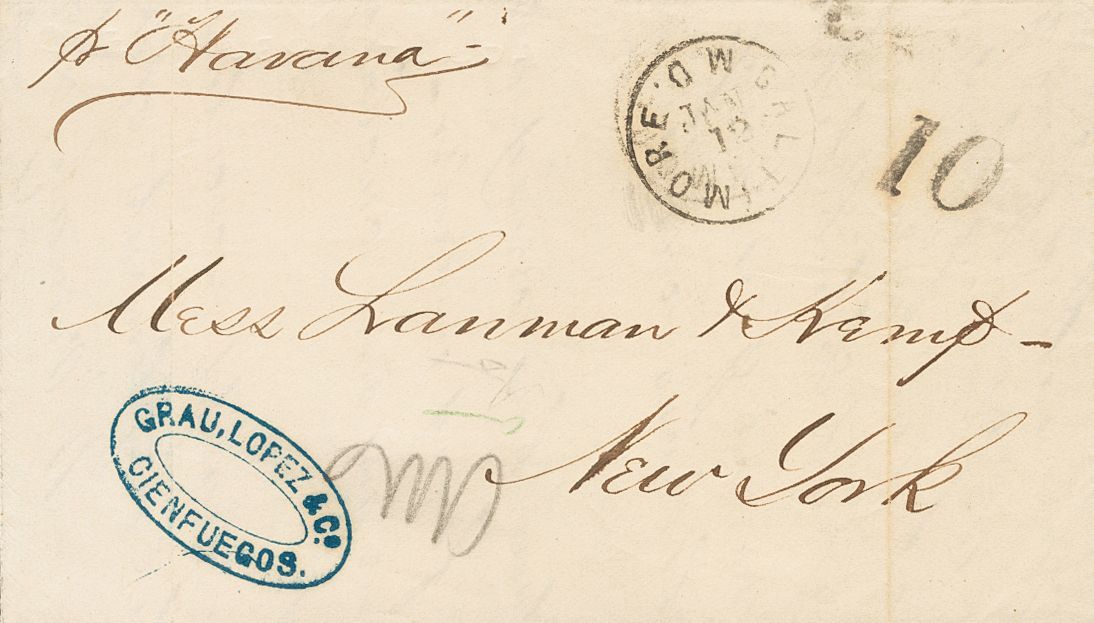 p "Havana"
BALTIMORE. MD.
JAN
12
10
Mess Lanman & Kemp -
New York
GRAU, LOPEZ & Co.
CIENFUEGOS.